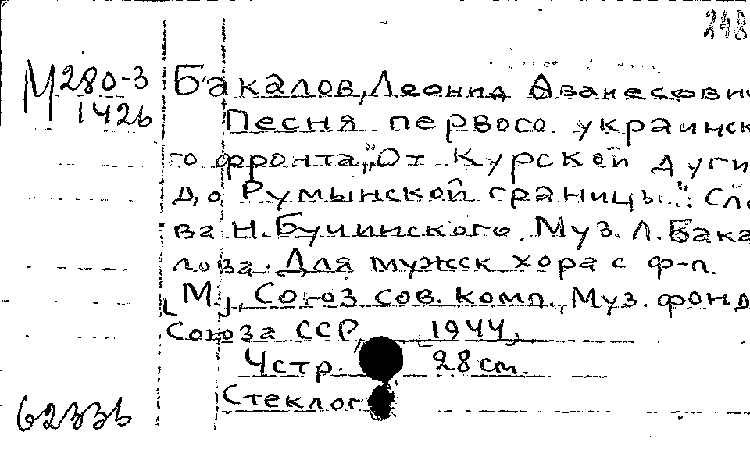 248
М280-3 Бакалов, Леонид Аванесович
1426 Песня первого украинск
го фронта „От Курской дуги
до Румынской границы". Сло
ва Н. Бучинского. Муз. Л. Бака
лова. Для мужск хора с ф-п.
[М.], Союз сов. комп., Муз. фонд
Союза ССР, [1944].
4стр. 28 см.
Стеклог
6233б